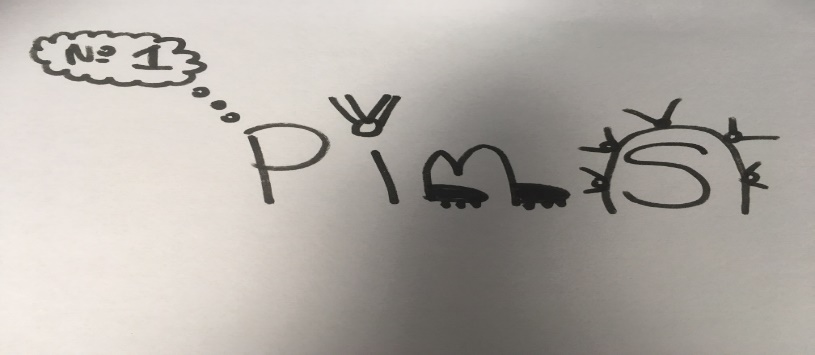 Nº 1
Pims